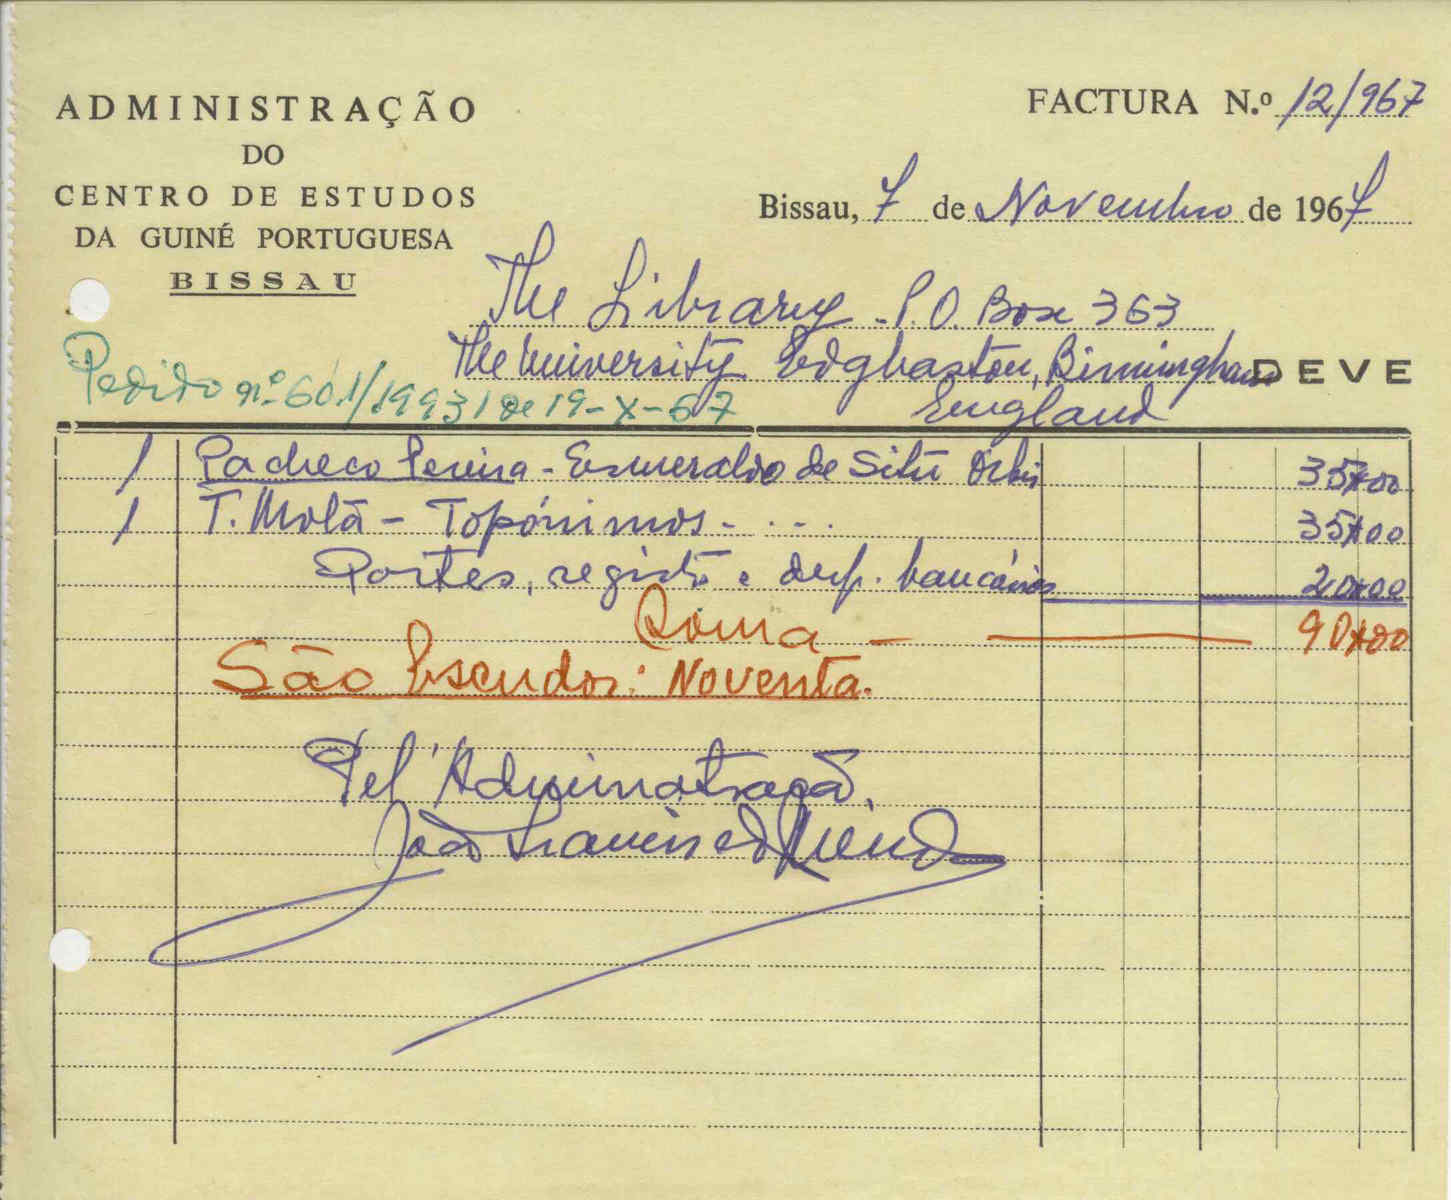 ADMINISTRAÇÃO
DO
CENTRO DE ESTUDOS
DA GUINÉ PORTUGUESA
BISSAU
FACTURA N.º 12/967
Bissau, 7 de Novembro de 1967
The Library - P.O. Box 363
The University Edgbaston, Birmingham
England
DEVE
Pedido nº 601/19931 de 19-X-67
1 Pacheco Pereira - Esmeraldo de Situ Orbis 35$00
1 T. Mota - Topónimos - . . . 35$00
Portes, registo e desp. bancárias 20$00
Soma - 90$00
São Escudos: Noventa.
Pel'Administração,
João Francisco